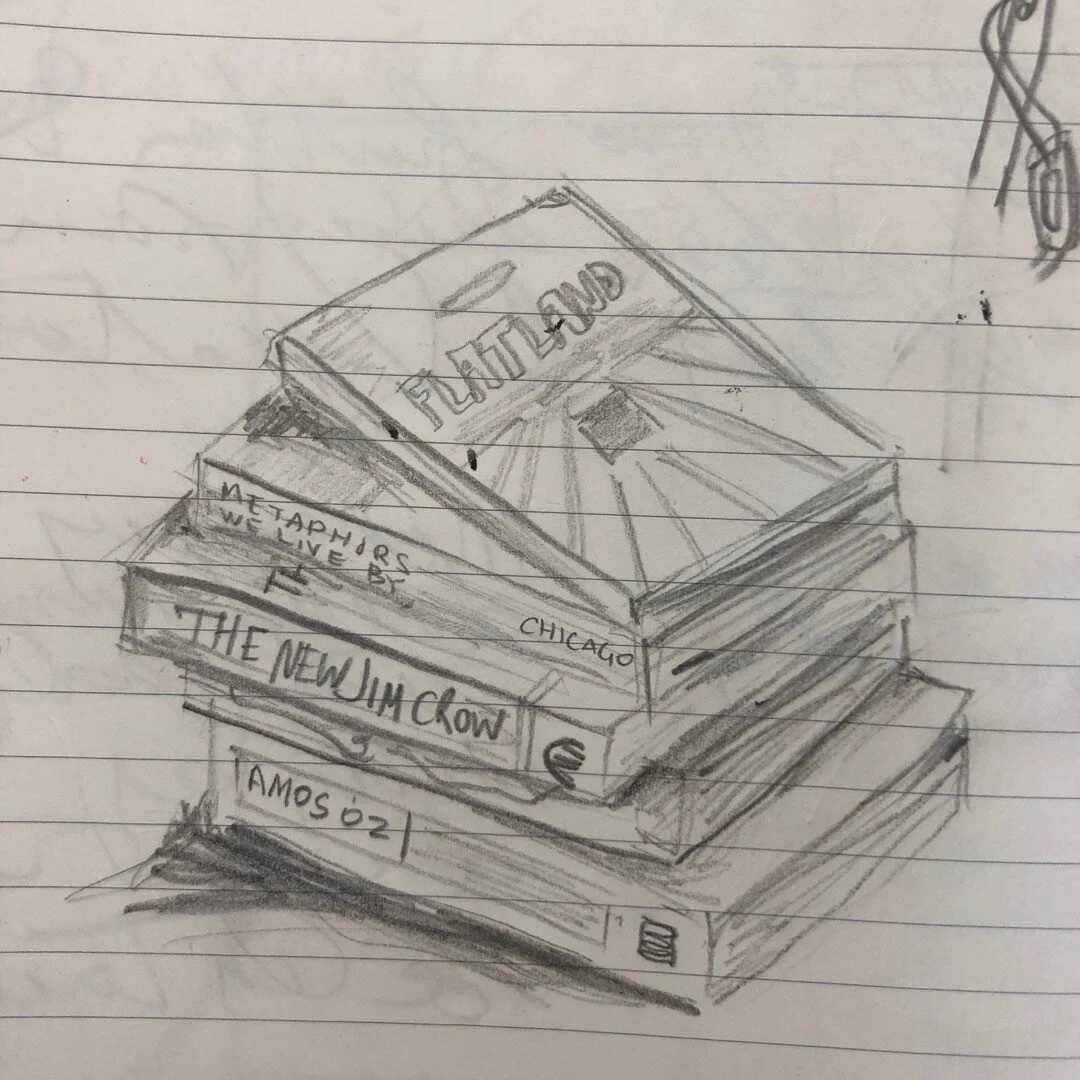 FLATLAND
METAPHORS
WE LIVE BY
CHICAGO
THE NEW JIM CROW
AMOS OZ